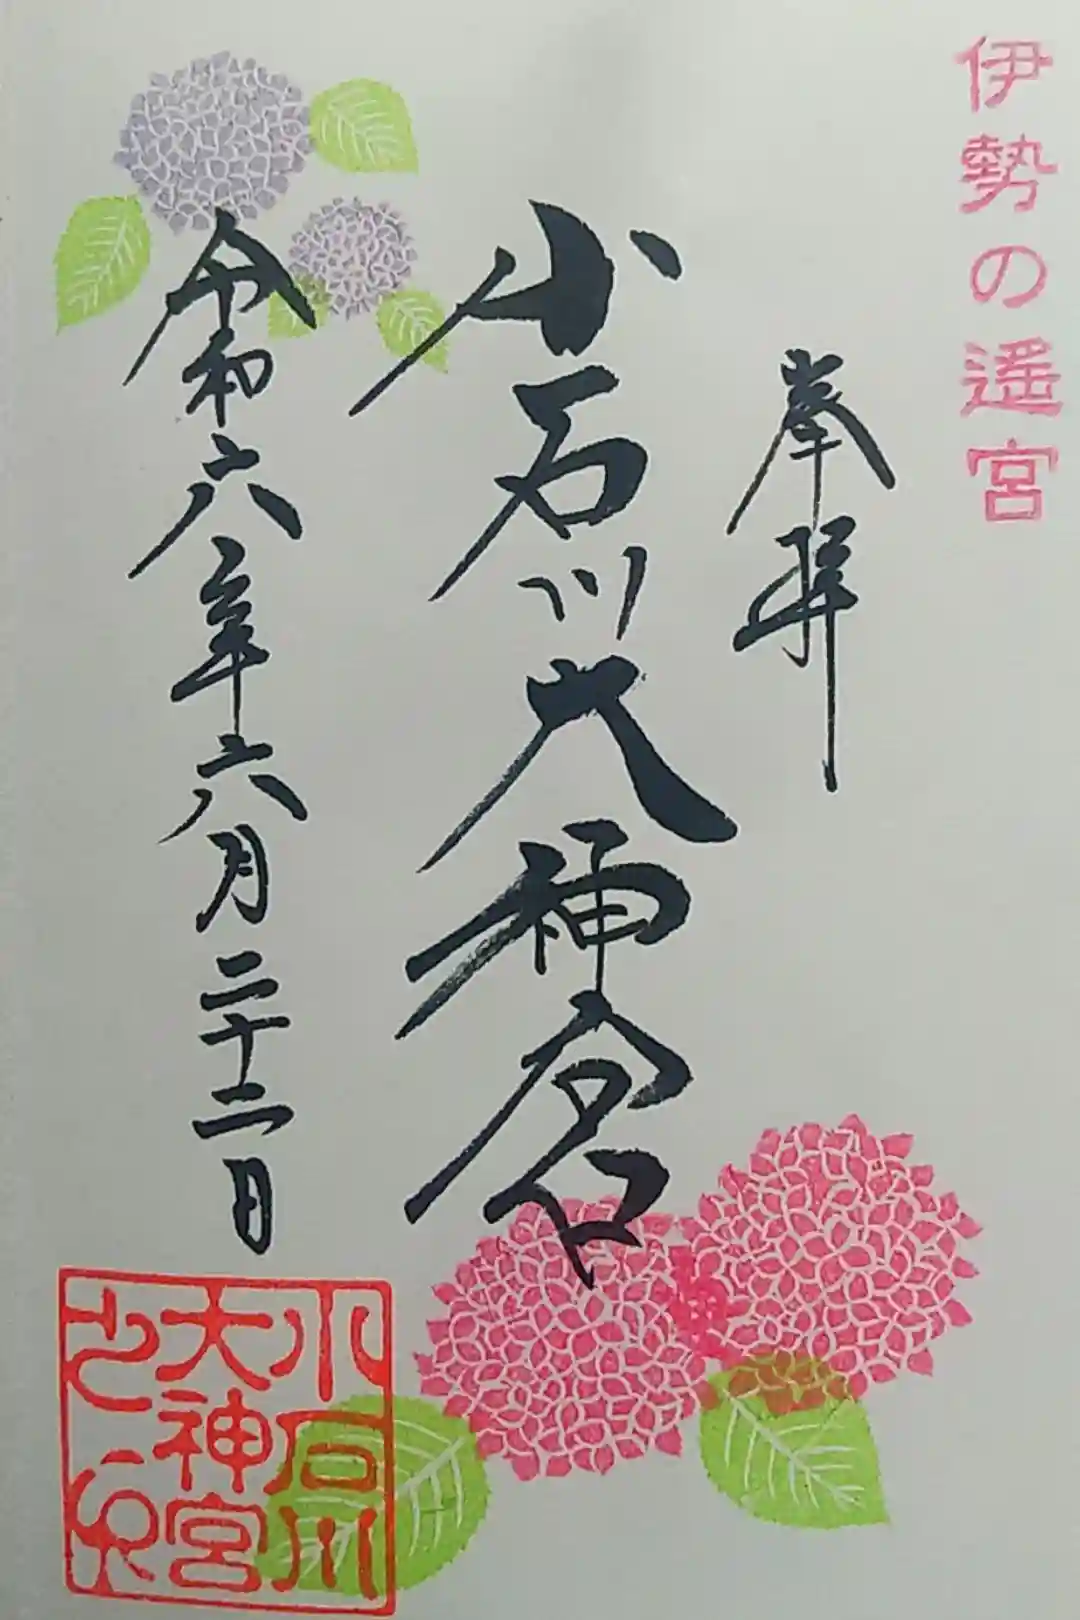 伊勢の遥宮
奉拝
小石川大神宮
令和六年六月二十二日
小石川
大神宮
之印